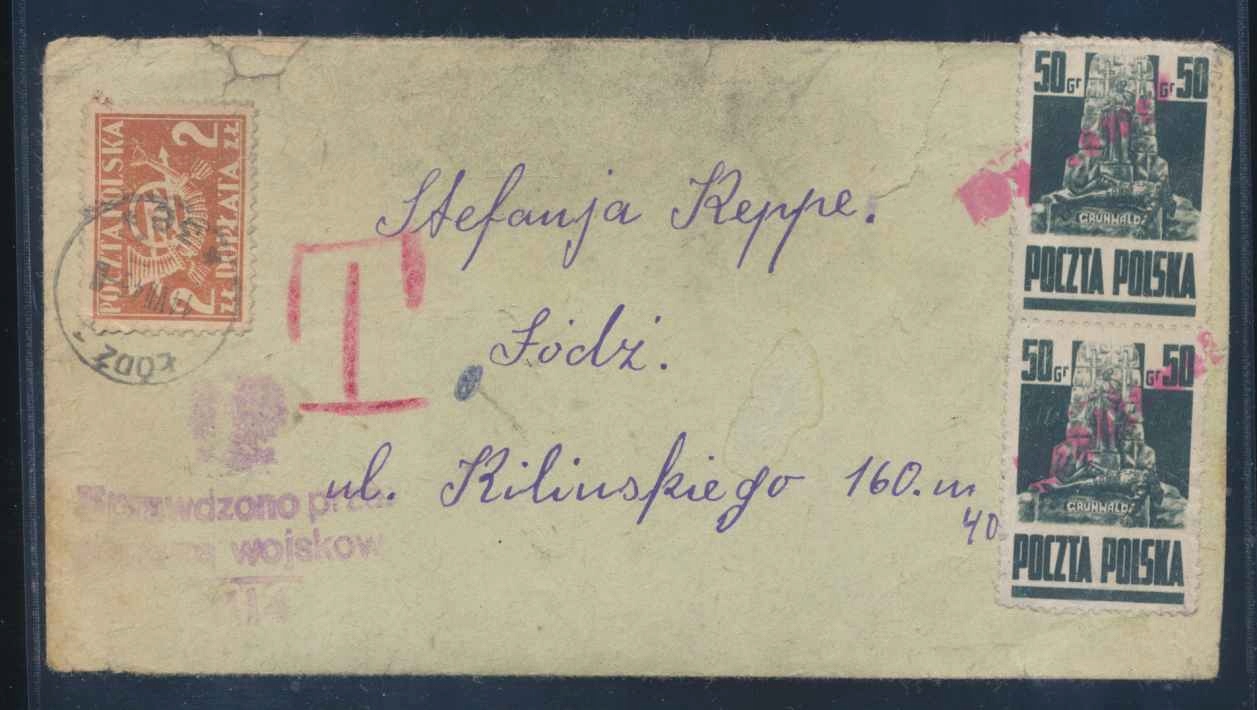 Stefanja Keppe.
Łódź.
ul. Kilinskiego 160. m
40
T
POCZTA POLSKA
2 2
ZŁ DOPŁATA ZŁ
ŁÓDŹ
VII
Sprawdzono prze
wojskow
114
50 Gr Gr 50
GRUNWALD
POCZTA POLSKA
50 Gr Gr 50
GRUNWALD
POCZTA POLSKA